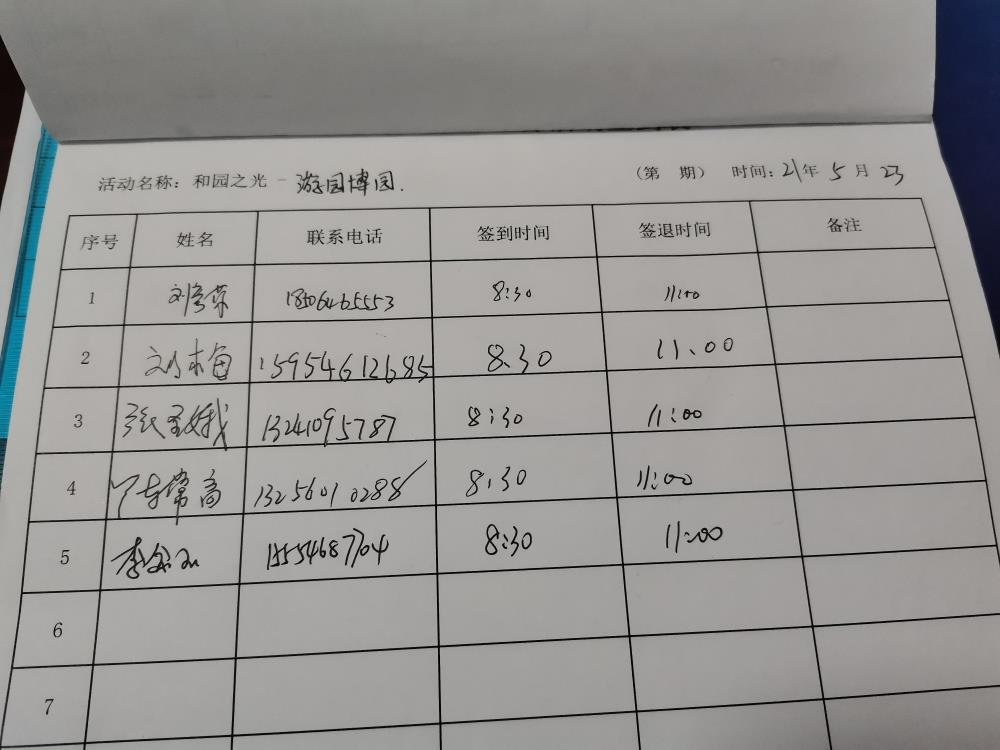 活动名称：和园之光 - 游园博园.
（第 期） 时间：21年 5月 23
序号 姓名 联系电话 签到时间 签退时间 备注
1 18506465553 8:30 11:00
2 刘 15954612685 8.30 11.00
3 张 娥 13241095787 8:30 11:00
4 常高 13256010288 8:30 11:00
5 李 15554687704 8:30 11:00
6
7